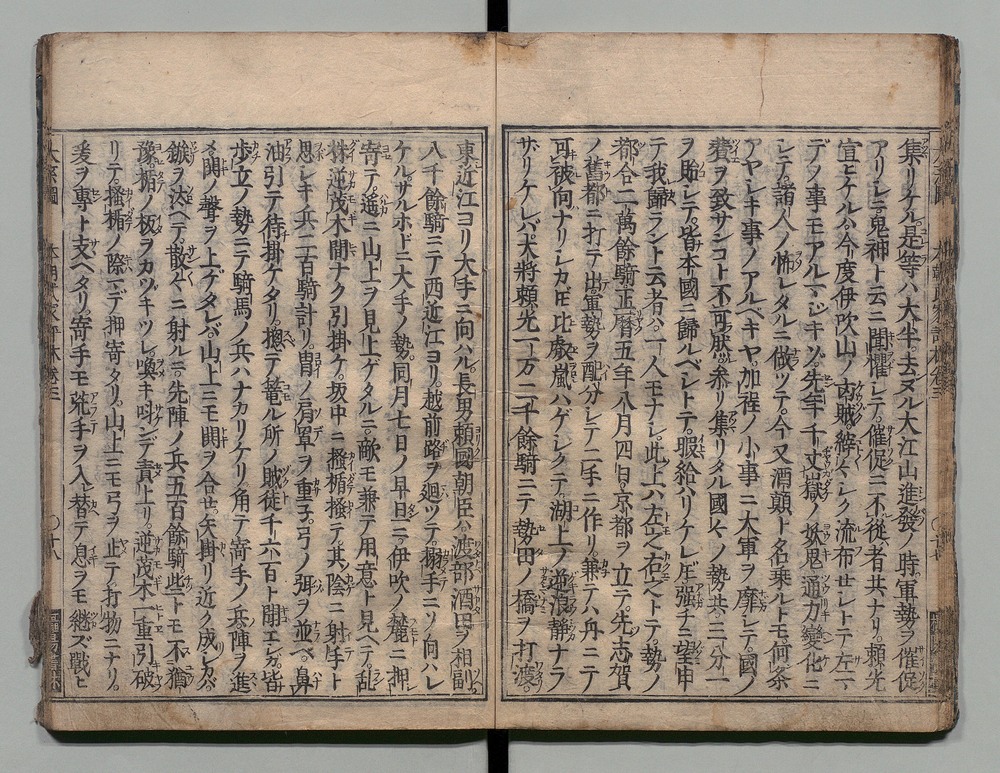 集リケル是等ハ大半去ヌル大江山進發ノ時軍勢ヲ催促
アリシニ鬼神ト云ニ聞懼シテ催促ニ不從者共ナリ。頼光
宣ヒケルハ今度伊吹山ノ凶賊
流布セシトテ左一
デノ事モアルマジキゾ。先年千丈嶽ノ妖鬼通力變化ニ
シテ。諸人ノ怖レタルニ做ツテ。今又酒顛ト名乗ルトモ。何条
アヤシキ事ノアルベキヤ加程ノ小事ニ大軍ヲ靡シテ。國ノ
費ヲ致サンコト不可然。参リ集リタル國々ノ勢共。三分一
ヲ貽シテ。皆本國ニ歸ルベシトテ。暇給ハリケレ𪜈。强チニ望申
テ我歸ラント云者ハ。一人モナシ。此上ハ左右ヘトテ勢ノ
都合二萬餘騎正暦五年八月四日。京都ヲ立テ。先志賀
ノ舊都ニ打テ出軍勢ヲ配分シテ二手ニ作リ。兼テハ舟ニテ
可被向ナリシカ𪜈比叡嵐ハゲシクテ。湖上ノ逆浪靜ナラ
サリケレバ。大將頼光一万二千餘騎ニテ勢田ノ橋ヲ打渡。
東近江ヨリ大手ニ向ハル。長男頼國朝臣ハ渡部酒田ヲ相副
八千餘騎ニテ西近江ヨリ。越前路ヲ廻ツテ。搦手ニゾ向ハレ
ケル。サルホドニ大手ノ勢。同月七日ノ早旦ニ伊吹ノ麓ニ押
寄テ。遙ニ山上ヲ見上ゲタルニ。敵モ兼テ用意ト見ヘテ。乱
株逆茂木間ナク引掛ケ。坂中ニ掻楯掻テ。其陰ニ射手ト
思シキ兵二百騎計リ。冑ノ肩罩ヲ重子。弓ノ弭ヲ並ベ。鼻
油引テ待掛ケタリ。摠テ篭ル所ノ賊徒千六百ト聞エシガ。皆
歩立ノ勢ニテ騎馬ノ兵ハナカリケリ角テ寄手ノ兵陣ヲ進
メ鬨ノ聲ヲ上ゲタレバ。山上ニモ鬨ヲ合セ。矢掛リ近ク成シカバ。
鏃ヲ汰ヘテ散々ニ射ルニ。先陣ノ兵五百餘騎。些トモ不猶
豫。楯ノ板ヲカヅキツレ。喚キ叫ンデ責上リ。逆茂木一重引破
リテ。掻楯ノ際マデ押寄タリ。山上ニモ弓ヲ止テ。打物ニナリ。
爰ヲ專ト支ヘタリ。寄手モ荒手ヲ入替テ息ヲモ継ズ戰ヒ